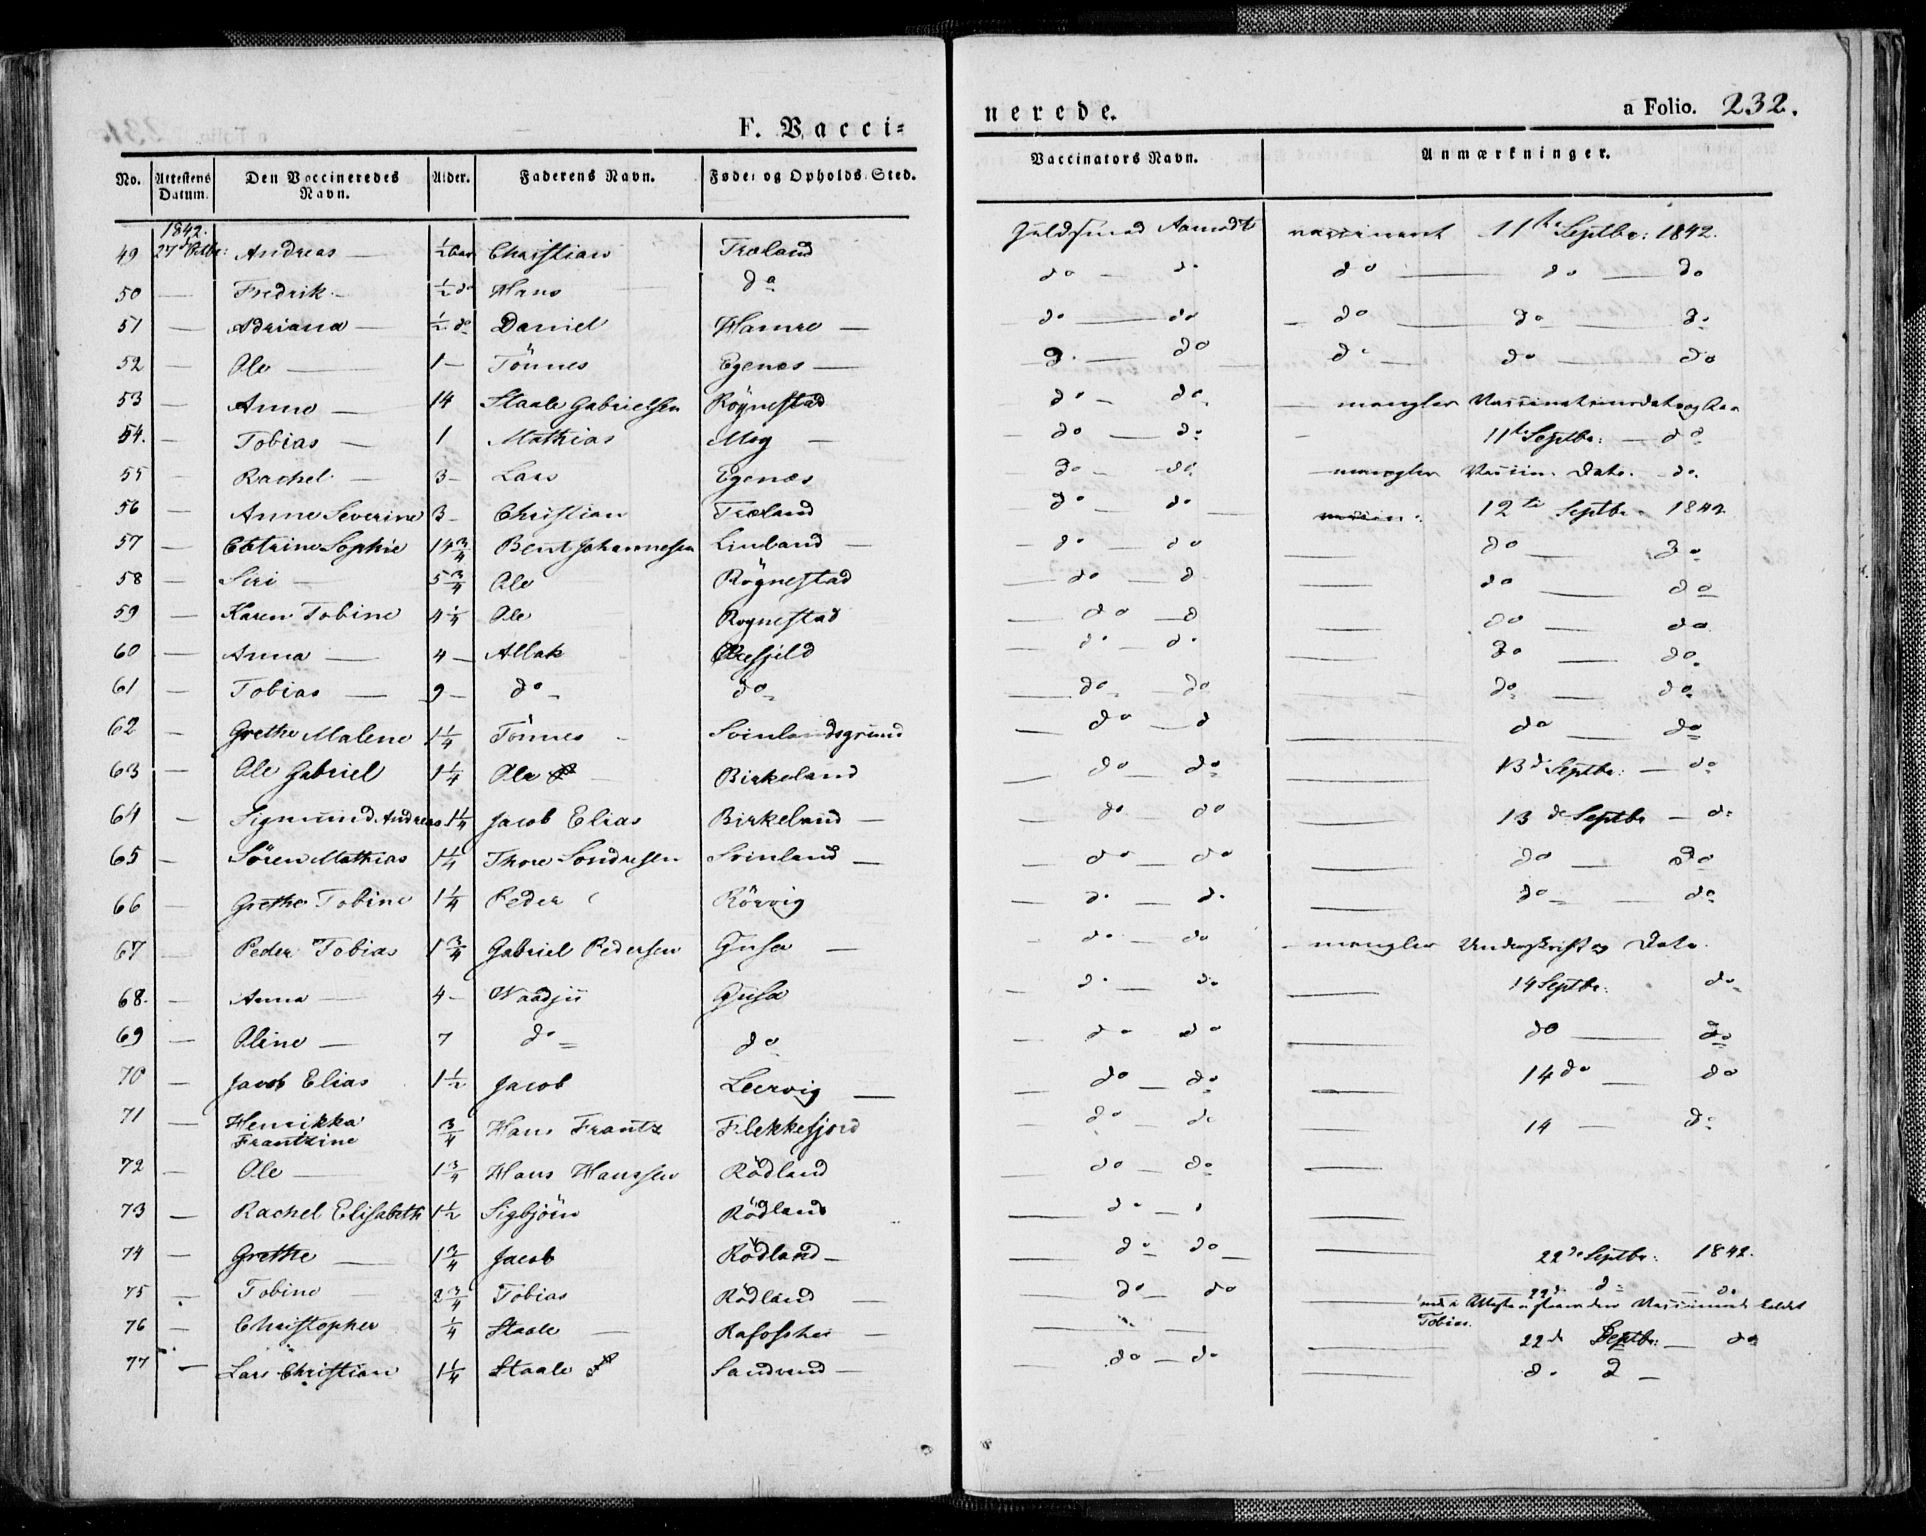 F. Vacci=
nerede.
a Folio. 232.
No. Attestens Datum. Den Vaccineredes Navn. Alder. Faderens Navn. Føde- og Opholds-Sted. Vaccinators Navn. Anmærkninger.
1842.
49 27de Octbr: Andreas — ½ Aar Christian Træland Guldsmed Aamodt vaccineret 11te Septbr: 1842.
50 — Fredrik — ½ do Hans do do — do do — do — do
51 — Adriana — ½ do Daniel Hamre — do — do do — do — do
52 — Ole — 1 — Tönnes Egenæs — do — do do — do — do
53 — Anne — 14 Staale Gabrielsen Rögnestad do — do — mangler Vaccinationsdato og Aar
54. — Tobias — 1 Mathias Moy — do — do 11te Septbr: — do
55 — Rachel — 3 — Lars Egenæs do — do — mangler Vaccin. Dato. — do
56 — Anne Severine 3 — Christian Træland do — do 12te Septbr 1842
57 — Cathrine Sophie 14¾ Bent Johannesen Linland — do — do — do — do
58 — Siri — 5¾ Ole Rögnestad — do — d do — do
59 — Karen Tobine 4¼ Ole Rognestad do — d — do — do
60 — Anna — 4 — Atlak do — do — do — do
61 — Tobias — 9 — do — do — do — do — do — do
62 — Grethe Malene 1¼ Tönnes — Svinlandsgrund — do — d — do — do
63 — Ole Gabriel 1¼ Ole Birkeland — do — do — 13de Septbr: — do
64 — Sigmund Andreas 1¼ Jacob Elias Birkeland — do do — 13de Septbr — do
65 — Sören Mathias 1¼ Thore Sondresen Svinland — do — do — do — do
66 Grethe Tobine 1¼ Peder Rörvig do — do — do — do
67 — Peder Tobias 1¾ Gabriel Pedersen Gusa — do — do — mangler Underskrift og Dato.
68. — Anna — 4 — Gusa — do — do — 14 Septbr: do
69 — Oline — 7 do do — do — do — do — do
70 — Jacob Elias 1½ Jacob Leervig — do — do — 14 do — do
71 — Henrikka Frantzine ¾ Hans Frantz Flekkefjord — do — do — 14 — do
72 — Ole — 1¾ Hans Hanssen Rödland do — do —
73 — Rachel Elisabeth 1½ Sigbjörn Rödland — do —
74 — Grethe — 1¾ Jacob Rödland — do do — — 22de Septbr: 1842.
75 — Tobine 2¾ Tobias Rödland — do — do — 22de d — do
76 — Christopher ¼ Staale — — — 22de Septbr: — do
Tobias.
77 — Lars Christian 1¼ Staale — do — do — do d —